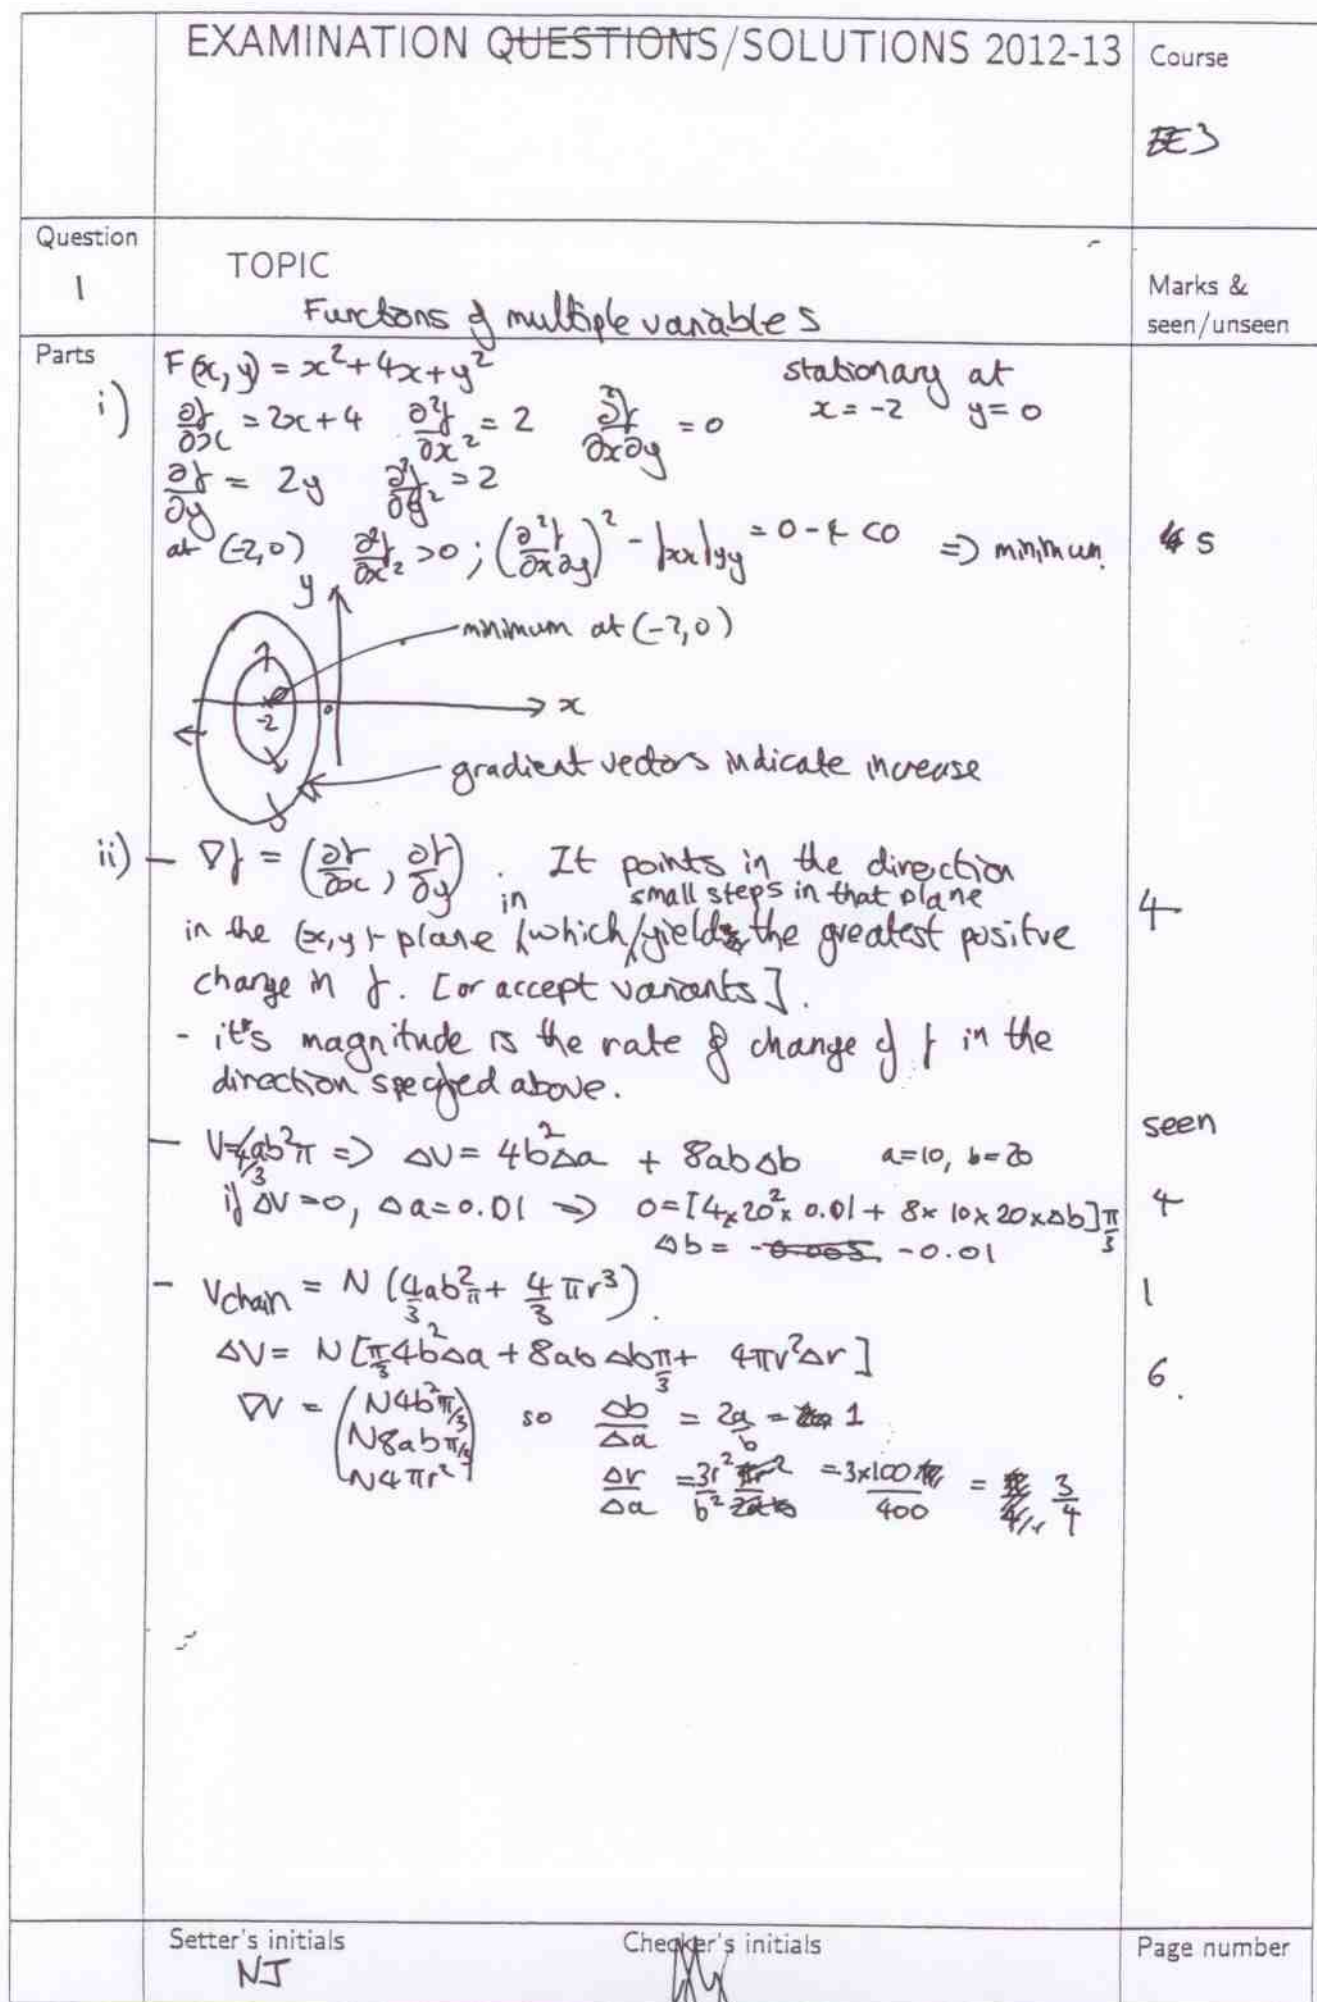 EXAMINATION QUESTIONS/SOLUTIONS 2012-13
Course
EE3
Question
1
TOPIC
Functions of multiple variables
Marks &
seen/unseen
Parts
i)
F(x,y) = x² + 4x + y²
stationary at
x = -2 y = 0
∂f/∂x = 2x+4 ∂²f/∂x² = 2 ∂²f/∂x∂y = 0
∂f/∂y = 2y ∂²f/∂y² = 2
at (-2,0) ∂²f/∂x² > 0 ; (∂²f/∂x∂y)² - fxx fyy = 0 - 4 < 0 => minimum.
5
y
minimum at (-2,0)
x
-2
gradient vectors indicate increase
ii) - ∇f = (∂f/∂x, ∂f/∂y). It points in the direction
in the (x,y)-plane in which small steps in that plane yield the greatest positive
4
change in f. [or accept variants].
- it's magnitude is the rate of change of f in the
direction specified above.
seen
- V=4/3 ab²π => ΔV = 4b²Δa + 8abΔb a=10, b=20
if ΔV=0, Δa=0.01 => 0=[4×20²×0.01 + 8×10×20×Δb]π/3
4
Δb = -0.005 -0.01
- Vchain = N(4/3 ab²π + 4/3 πr³).
1
ΔV = N[π/3 4b²Δa + 8abΔb π/3 + 4πr²Δr]
6.
∇V = (N4b²π/3
N8abπ/3
N4πr²)
so Δb/Δa = 2a/b = 1
Δr/Δa = 3r²/b² = 3×100/400 = 3/4
Setter's initials
NJ
Checker's initials
Page number